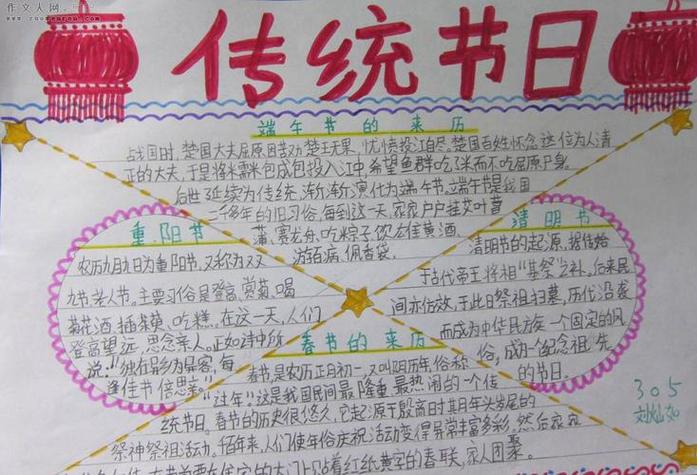 作文人网
传统节日
端午节的来历
战国时，楚国大夫屈原因劝楚王无果，忧愤投江自尽，楚国百姓怀念这位为人清
正的大夫，于是将米需米包成包投入江中，希望鱼群吃米而不吃屈原尸身。
后世延续为传统，渐渐演代为端午节。端午节是我国
二千多年的旧习俗，每到这一天，家家户户挂艾叶菖
蒲、赛龙舟、吃粽子、饮雄黄酒、
游百病，佩香袋。
重阳节
农历九月九日为重阳节，又称为双
九节、老人节。主要习俗是登高、赏菊、喝
菊花酒、插茱萸、吃糕。在这一天，人们
登高望远，思念亲人。正如诗中所
说："独在异乡为异客，每
逢佳节倍思亲。"
清明节
清明节的起源，据传始
于古代帝王将相"墓祭"之礼，后来民
间亦仿效，于此日祭祖扫墓，历代沿袭
而成为中华民族一个固定的风
俗，成为一个纪念祖先
的节日。
春节的来历
春节，是农历正月初一，又叫阴历年，俗称
"过年"。这是我国民间最隆重、最热闹的一个传
统节日。春节的历史很悠久，它起源于殷商时期年头岁尾的
祭神祭祖活动。百年来，人们使年俗庆祝活动变得异常丰富多彩，然后家家
在住宅的大门上贴着红纸黄字的春联，家人团聚。
305